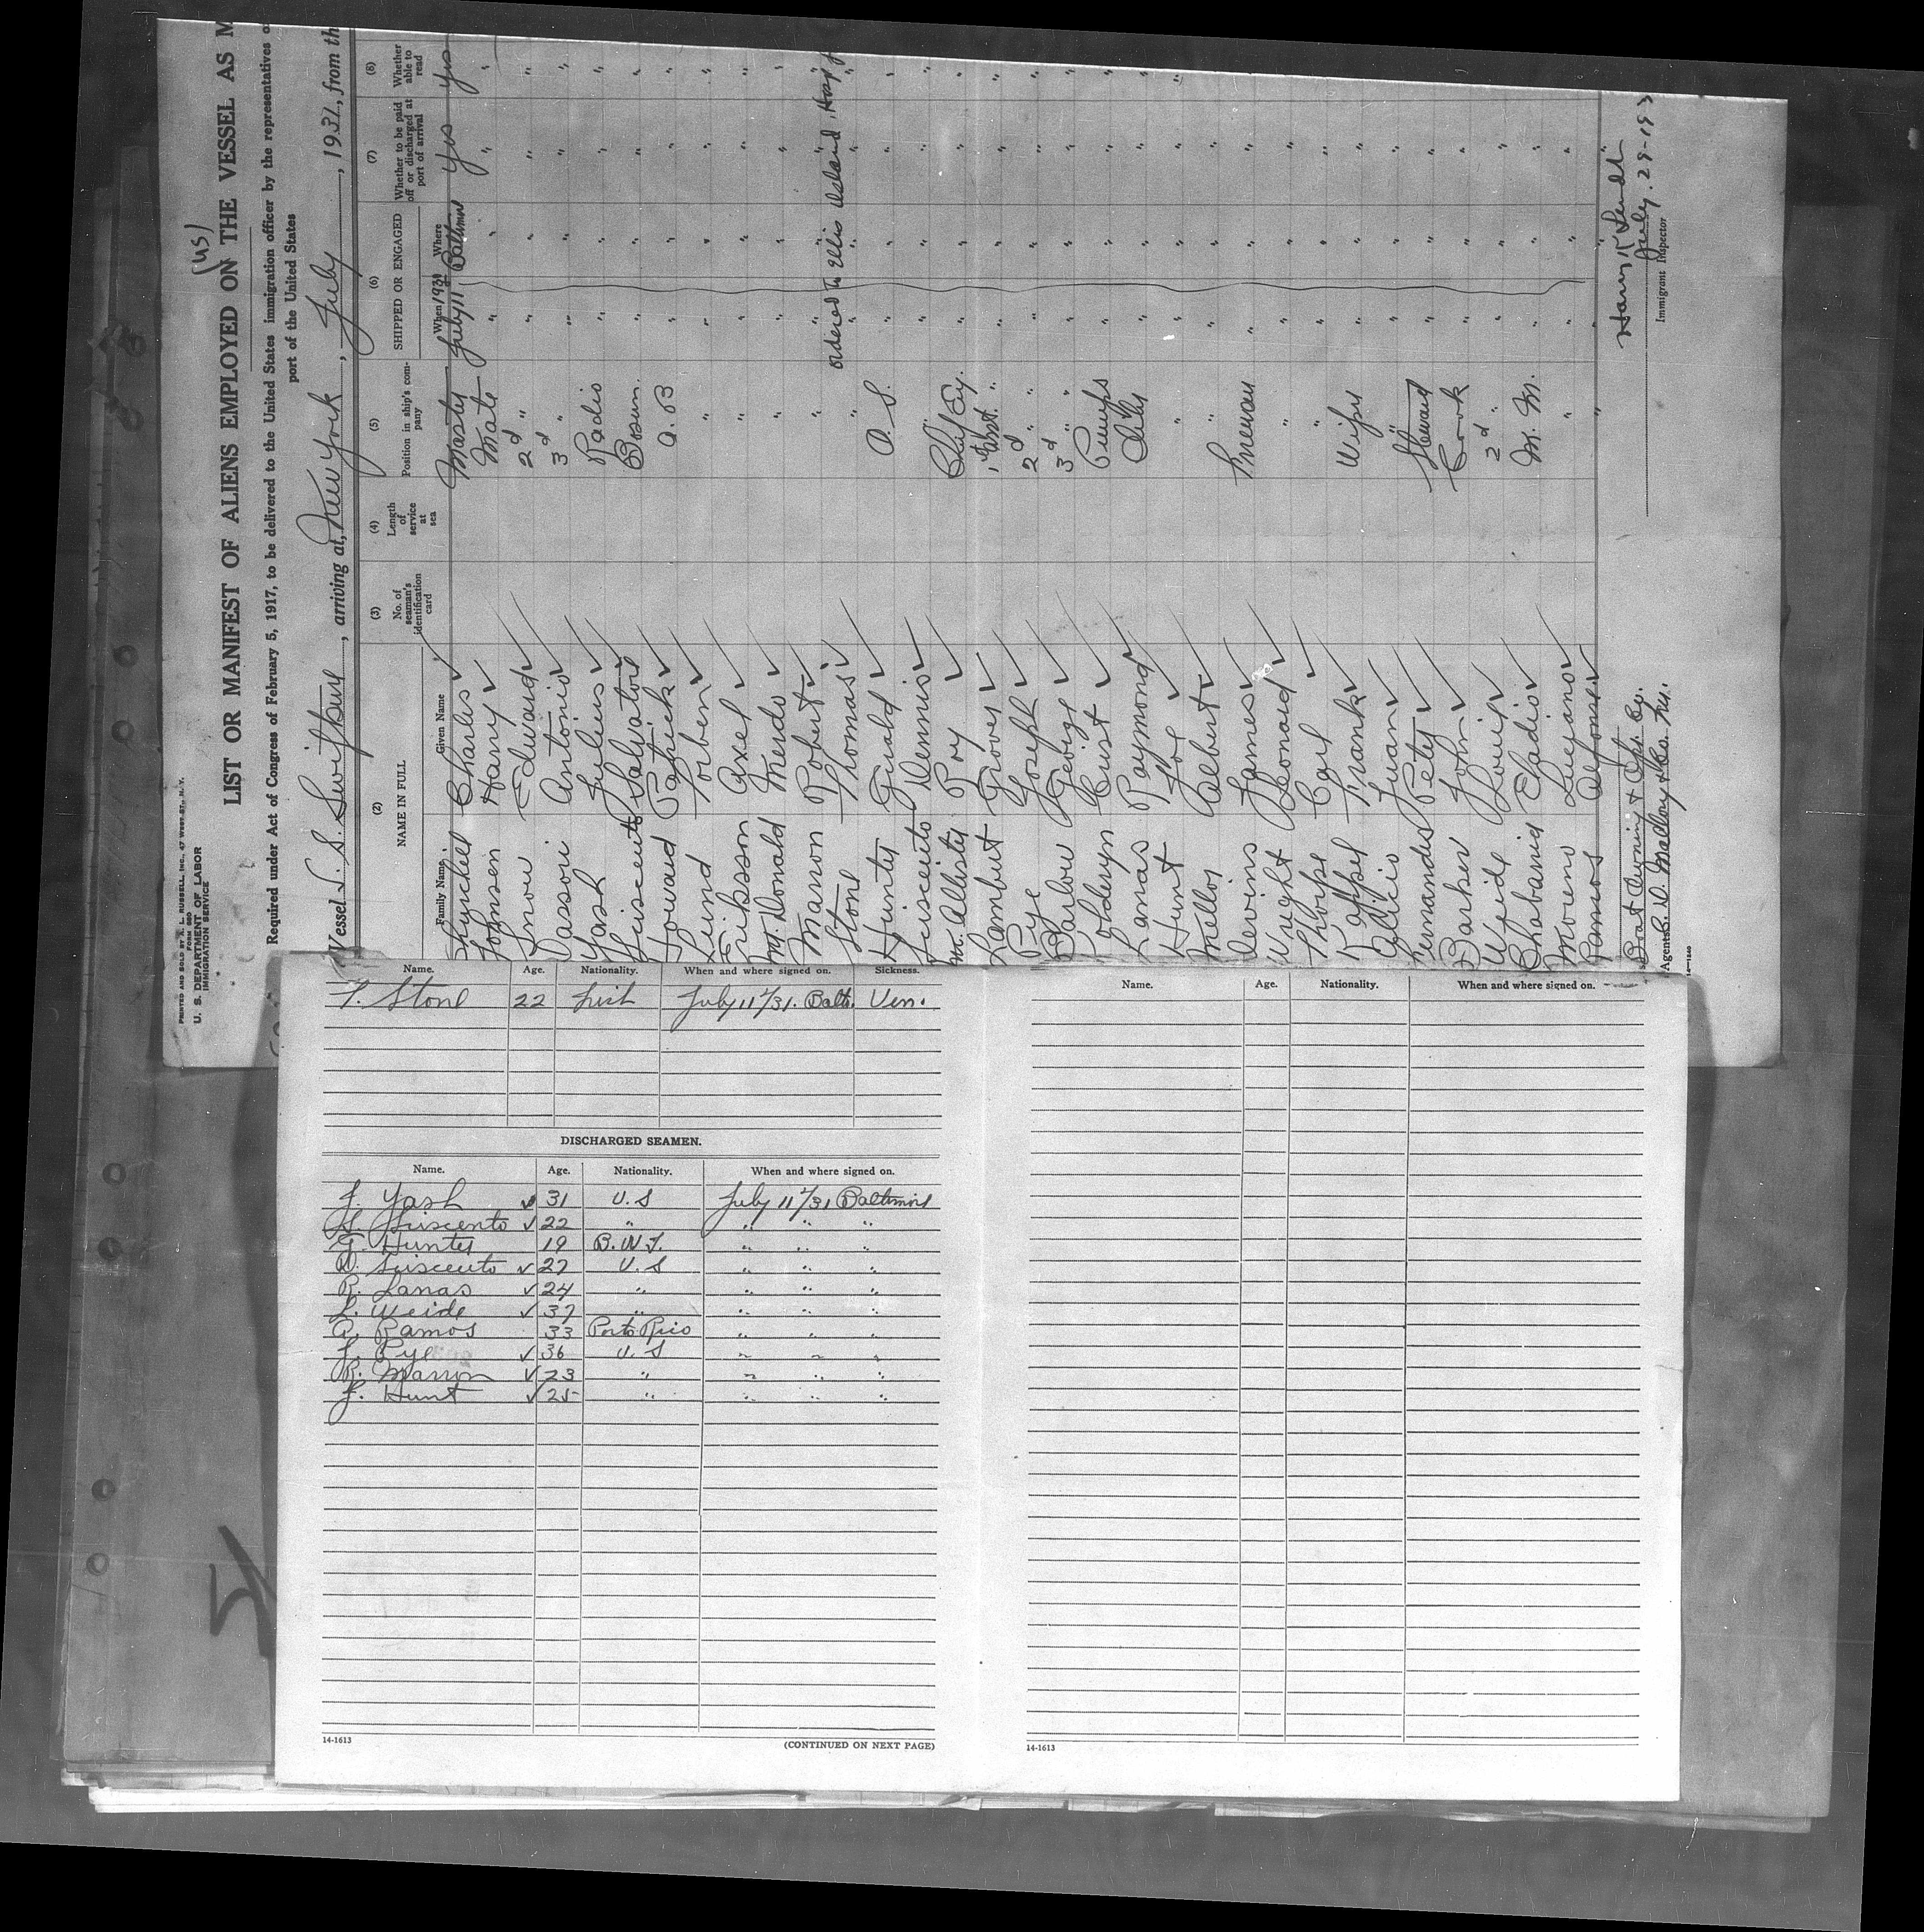 PRINTED AND SOLD BY A. L. RUSSELL, INC., 47 WEST ST., N. Y.
FORM 680
U. S. DEPARTMENT OF LABOR
IMMIGRATION SERVICE
(US)
LIST OR MANIFEST OF ALIENS EMPLOYED ON THE VESSEL AS M
Required under Act of Congress of February 5, 1917, to be delivered to the United States immigration officer by the representatives o
port of the United States
Vessel S. S. Swiftsure, arriving at New York, July, 1931, from th
(2) (3) (4) (5) (6) (7) (8)
NAME IN FULL No. of seaman's identification card Length of service at sea Position in ship's company SHIPPED OR ENGAGED Whether to be paid off or discharged at port of arrival Whether able to read
Family Name Given Name When 1931 Where
Churchell Charles Master July 11 Baltimore Yes Yes
Johnsen Harry Mate " " " "
Snow Edward 2d " " " " "
Antonio 3d " " " " "
Yash Julius Radio " " " "
Suscento Salvatore Bosun. " " " "
Howard Patrick A. B " " " "
Lund Torben " " " " "
Eriksson Axel " " " " "
McDonald Medo " " " " "
Marron Robert " " " " "
Stone Thomas " ordered to Ellis Island, Hosp
Hunter Gerald O. S. " " " "
Suscento Dennis " " " "
McAllister Roy Chief Eng. " " " "
Lambert Grover 1st Asst. " " " " "
Pye Joseph 2d " " " " "
Barlow George 3d " " " " "
Curt Pumps " " " "
Lanas Raymond Oiler " " " "
Hunt Joe " " " " "
Melloy Albert " " " " "
Devins James Fireman " " " "
Wright Leonard " " " " "
Thorpe Carl " " " " "
Kappel Frank Wiper " " " "
Juan " " " "
Fernandes Peter Steward " " " "
Barker John Cook " " " "
Weide Louis 2d " " " " "
Chabanid Eladio M. M. " " " "
Moreno Luejano " " " " "
Ramos Alfonse " " "
Agents C. D. Mallory & Co. Inc.
July. 29-193
Immigrant Inspector
14-1240
Name. Age. Nationality. When and where signed on. Sickness.
T. Stone 22 Irish July 11/31. Balto. Ven.
DISCHARGED SEAMEN.
Name. Age. Nationality. When and where signed on.
J. Yash 31 U. S July 11/31 Baltimore
S. Suscento 22 " " " "
G. Hunter 19 B. W. I. " " "
D. Suscento 27 U. S " " "
R. Lanas 24 " " " "
L. Weide 37 " " " "
A. Ramos 33 Porto Rico " " "
J. Pye 36 U. S " " "
R. Marron 23 " " " "
J. Hunt 25 " " " "
14-1613
(CONTINUED ON NEXT PAGE)
Name. Age. Nationality. When and where signed on.
14-1613